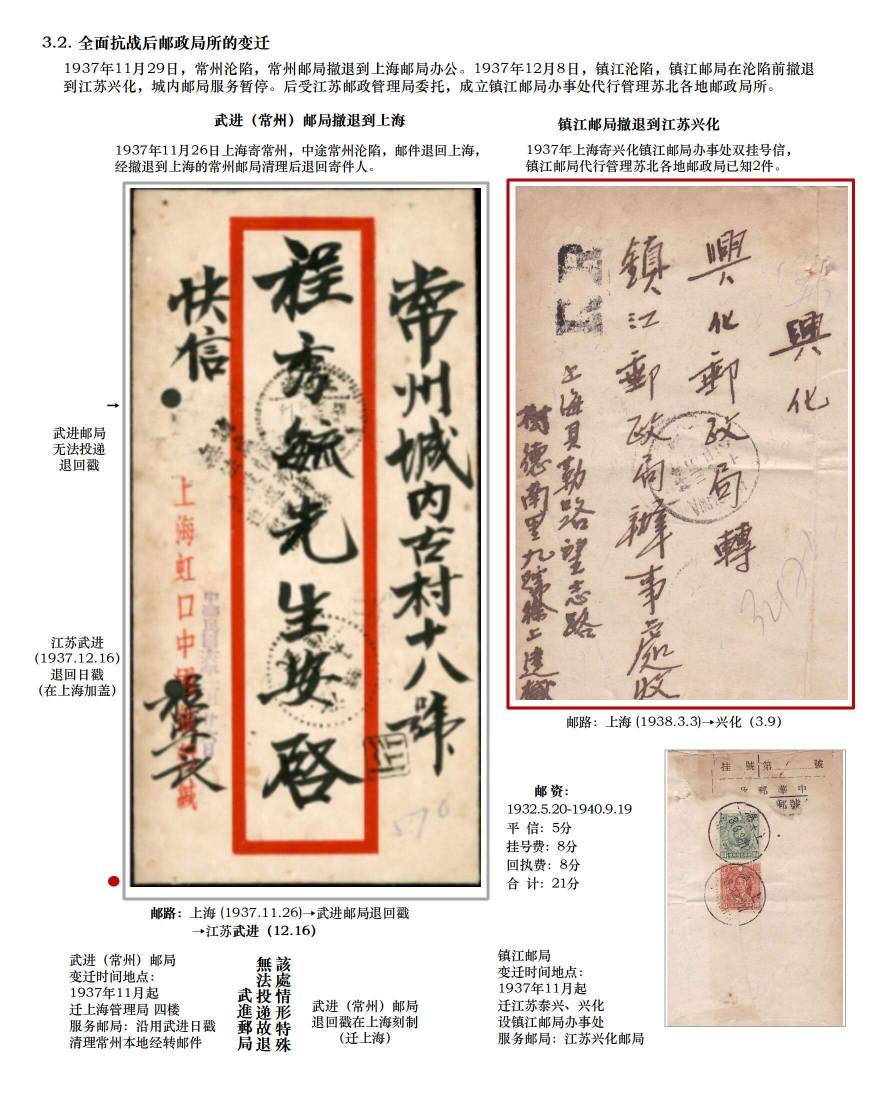 3.2. 全面抗战后邮政局所的变迁
1937年11月29日，常州沦陷，常州邮局撤退到上海邮局办公。1937年12月8日，镇江沦陷，镇江邮局在沦陷前撤退
到江苏兴化，城内邮局服务暂停。后受江苏邮政管理局委托，成立镇江邮局办事处代行管理苏北各地邮政局所。
武进（常州）邮局撤退到上海
1937年11月26日上海寄常州，中途常州沦陷，邮件退回上海，
经撤退到上海的常州邮局清理后退回寄件人。
常州城内古村十八號
程秀毓先生安啓
快信
上海虹口中
570
武进邮局
无法投递
退回戳
江苏武进
(1937.12.16)
退回日戳
(在上海加盖)
邮路：上海 (1937.11.26)→武进邮局退回戳
→江苏武进（12.16）
武进（常州）邮局
变迁时间地点：
1937年11月起
迁上海管理局 四楼
服务邮局：沿用武进日戳
清理常州本地经转邮件
該處情形特殊
無法投递故退
武進郵局
武进（常州）邮局
退回戳在上海刻制
（迁上海）
镇江邮局撤退到江苏兴化
1937年上海寄兴化镇江邮局办事处双挂号信，
镇江邮局代行管理苏北各地邮政局已知2件。
興化
興化郵政局轉
鎮江郵政局辦事處收
上海貝勒路望志路
樹德南里九號徐上達緘
邮路：上海 (1938.3.3)→兴化（3.9）
邮 资：
1932.5.20-1940.9.19
平 信：5分
挂号费：8分
回执费：8分
合 计：21分
挂 號 第 號
镇江邮局
变迁时间地点：
1937年11月起
迁江苏泰兴、兴化
设镇江邮局办事处
服务邮局：江苏兴化邮局